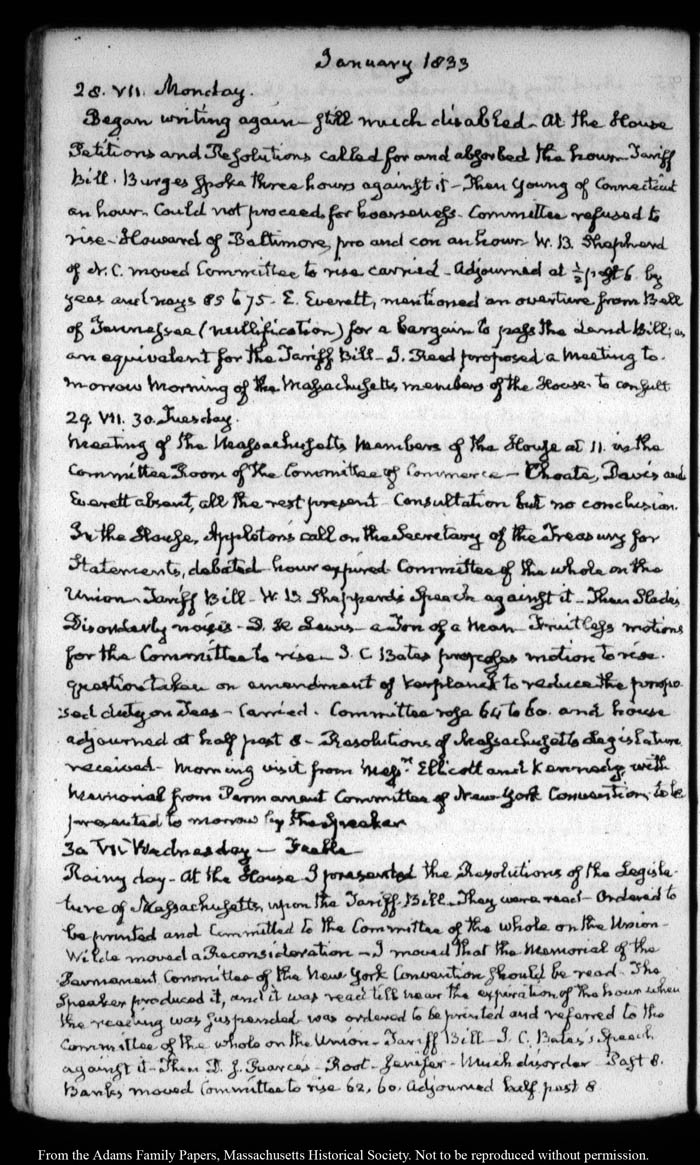 January 1833
28. VII. Monday.
Began writing again - still much disabled - At the House
Petitions and Resolutions called for and absorbed the hour - Tariff
Bill. Burges spoke three hours against it - Then Young of Connecticut
an hour. Could not proceed for hoarseness. Committee refused to
rise - Howard of Baltimore, pro and con an hour - W. B. Shephard
of N. C. moved Committee to rise carried - Adjourned at ½ past 6. by
yeas and nays 85 to 75 - E. Everett, mentioned an overture from Bell
of Tennessee (nullification) for a bargain to pass the Land Bill, as
an equivalent for the Tariff Bill - J. Reed proposed a Meeting to-
morrow Morning of the Massachusetts members of the House to consult
29. VII. 30. Tuesday.
Meeting of the Massachusetts Members of the House at 11. in the
Committee Room of the Committee of Commerce - Choate, Davis and
Everett absent, all the rest present - Consultation but no conclusion.
In the House, Appleton's call on the Secretary of the Treasury for
Statements, debated - hour expired Committee of the whole on the
Union - Tariff Bill - W. B. Shepperd's Speech against it - Then Slade's
Disorderly noises - D. H Lewis - a Ton of a Man - Fruitless motions
for the Committee to rise - I. C Bates proposes motion to rise.
question taken on amendment of Verplanck to reduce the propo
:sed duty on Teas - Carried. Committee rose 64 to 60. and house
adjourned at half past 8 - Resolutions of Massachusetts Legislature
received - Morning visit from Messrs. Ellicott and Kennedy, with
Memorial from Permanent Committee of New-York Convention, to be
presented to morrow by the Speaker
30 VII Wednesday - Feeble
Rainy day - At the House I presented the Resolutions of the Legisla-
ture of Massachusetts, upon the Tariff Bill. They were read - Ordered to
be printed and Committed to the Committee of the whole on the Union -
Wilde moved a Reconsideration - I moved that the Memorial of the
Permanent Committee of the New York Convention should be read - The
Speaker produced it, and it was read till near the expiration of the hour when
the reading was suspended was ordered to be printed and referred to the
Committee of the whole on the Union - Tariff Bill - I. C. Bates's Speech
against it - Then D. J. Pearce's - Root - Jenifer - Much disorder - Past 8.
Banks moved Committee to rise 62, 60. Adjourned half past 8
From the Adams Family Papers, Massachusetts Historical Society. Not to be reproduced without permission.